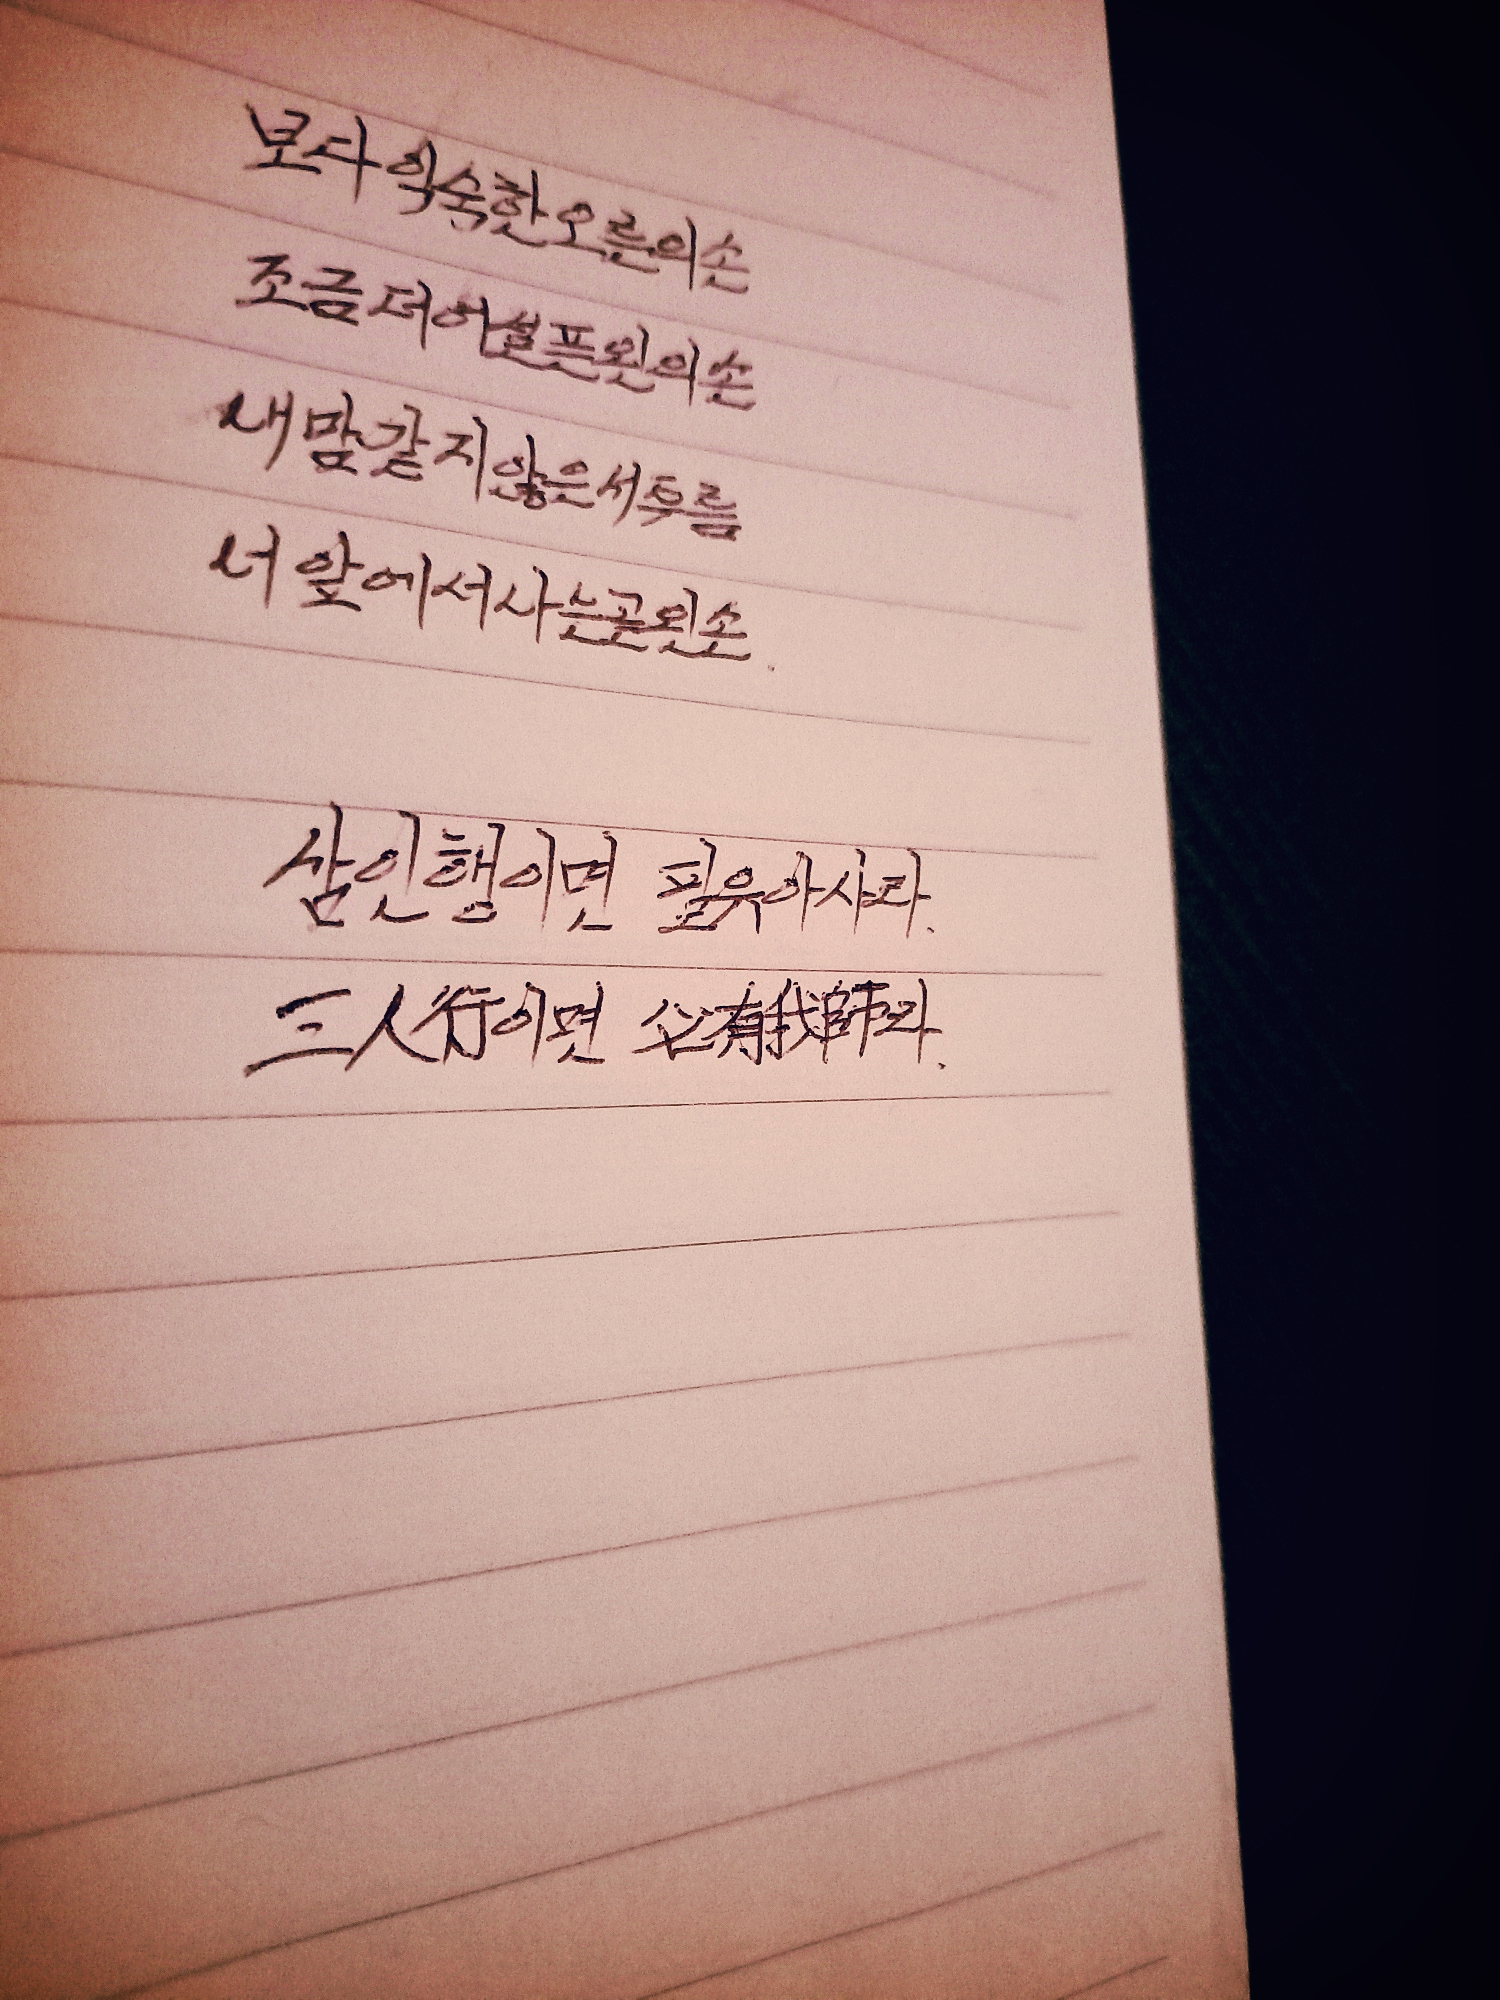 보다 익숙한 오른의 손
조금 더 어설픈 왼의 손
내 맘 같지 않은 서투름
너 앞에서 나는 곧 왼손.
삼인행이면 필유아사라.
三人行이면 必有我師라.